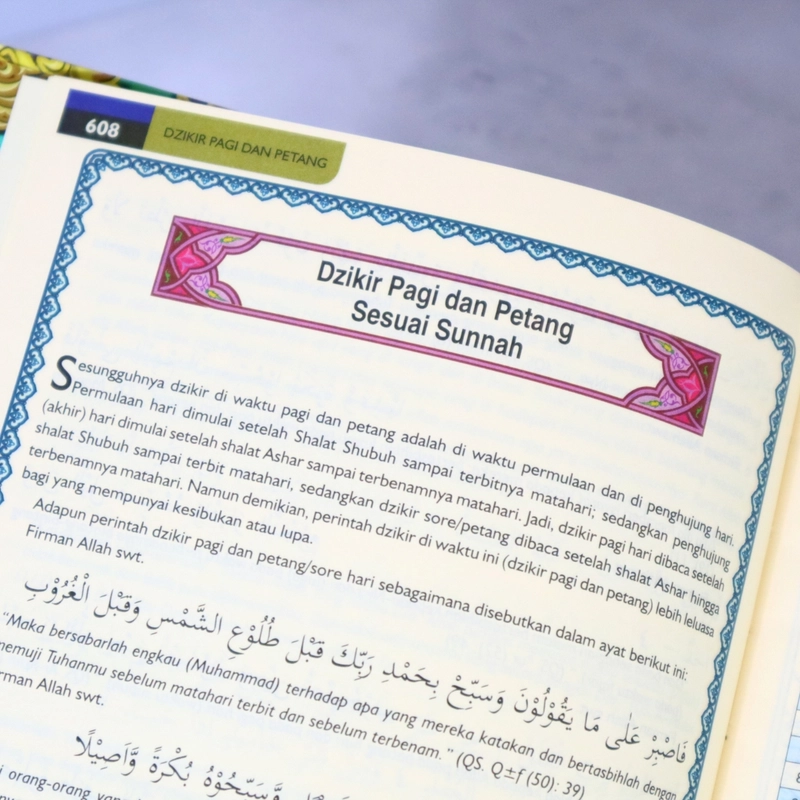 608 DZIKIR PAGI DAN PETANG
Dzikir Pagi dan Petang
Sesuai Sunnah
Sesungguhnya dzikir di waktu pagi dan petang adalah di waktu permulaan dan di penghujung hari.
Permulaan hari dimulai setelah Shalat Shubuh sampai terbitnya matahari; sedangkan penghujung
(akhir) hari dimulai setelah shalat Ashar sampai terbenamnya matahari. Jadi, dzikir pagi hari dibaca setelah
shalat Shubuh sampai terbit matahari, sedangkan dzikir sore/petang dibaca setelah shalat Ashar hingga
terbenamnya matahari. Namun demikian, perintah dzikir di waktu ini (dzikir pagi dan petang) lebih leluasa
bagi yang mempunyai kesibukan atau lupa.
Adapun perintah dzikir pagi dan petang/sore hari sebagaimana disebutkan dalam ayat berikut ini:
Firman Allah swt.
فَاصْبِرْ عَلٰى مَا يَقُوْلُوْنَ وَسَبِّحْ بِحَمْدِ رَبِّكَ قَبْلَ طُلُوْعِ الشَّمْسِ وَقَبْلَ الْغُرُوْبِ
"Maka bersabarlah engkau (Muhammad) terhadap apa yang mereka katakan dan bertasbihlah dengan
memuji Tuhanmu sebelum matahari terbit dan sebelum terbenam." (QS. Q±f (50): 39)
Firman Allah swt.
وَّسَبِّحُوْهُ بُكْرَةً وَّاَصِيْلًا
orang-orang yang